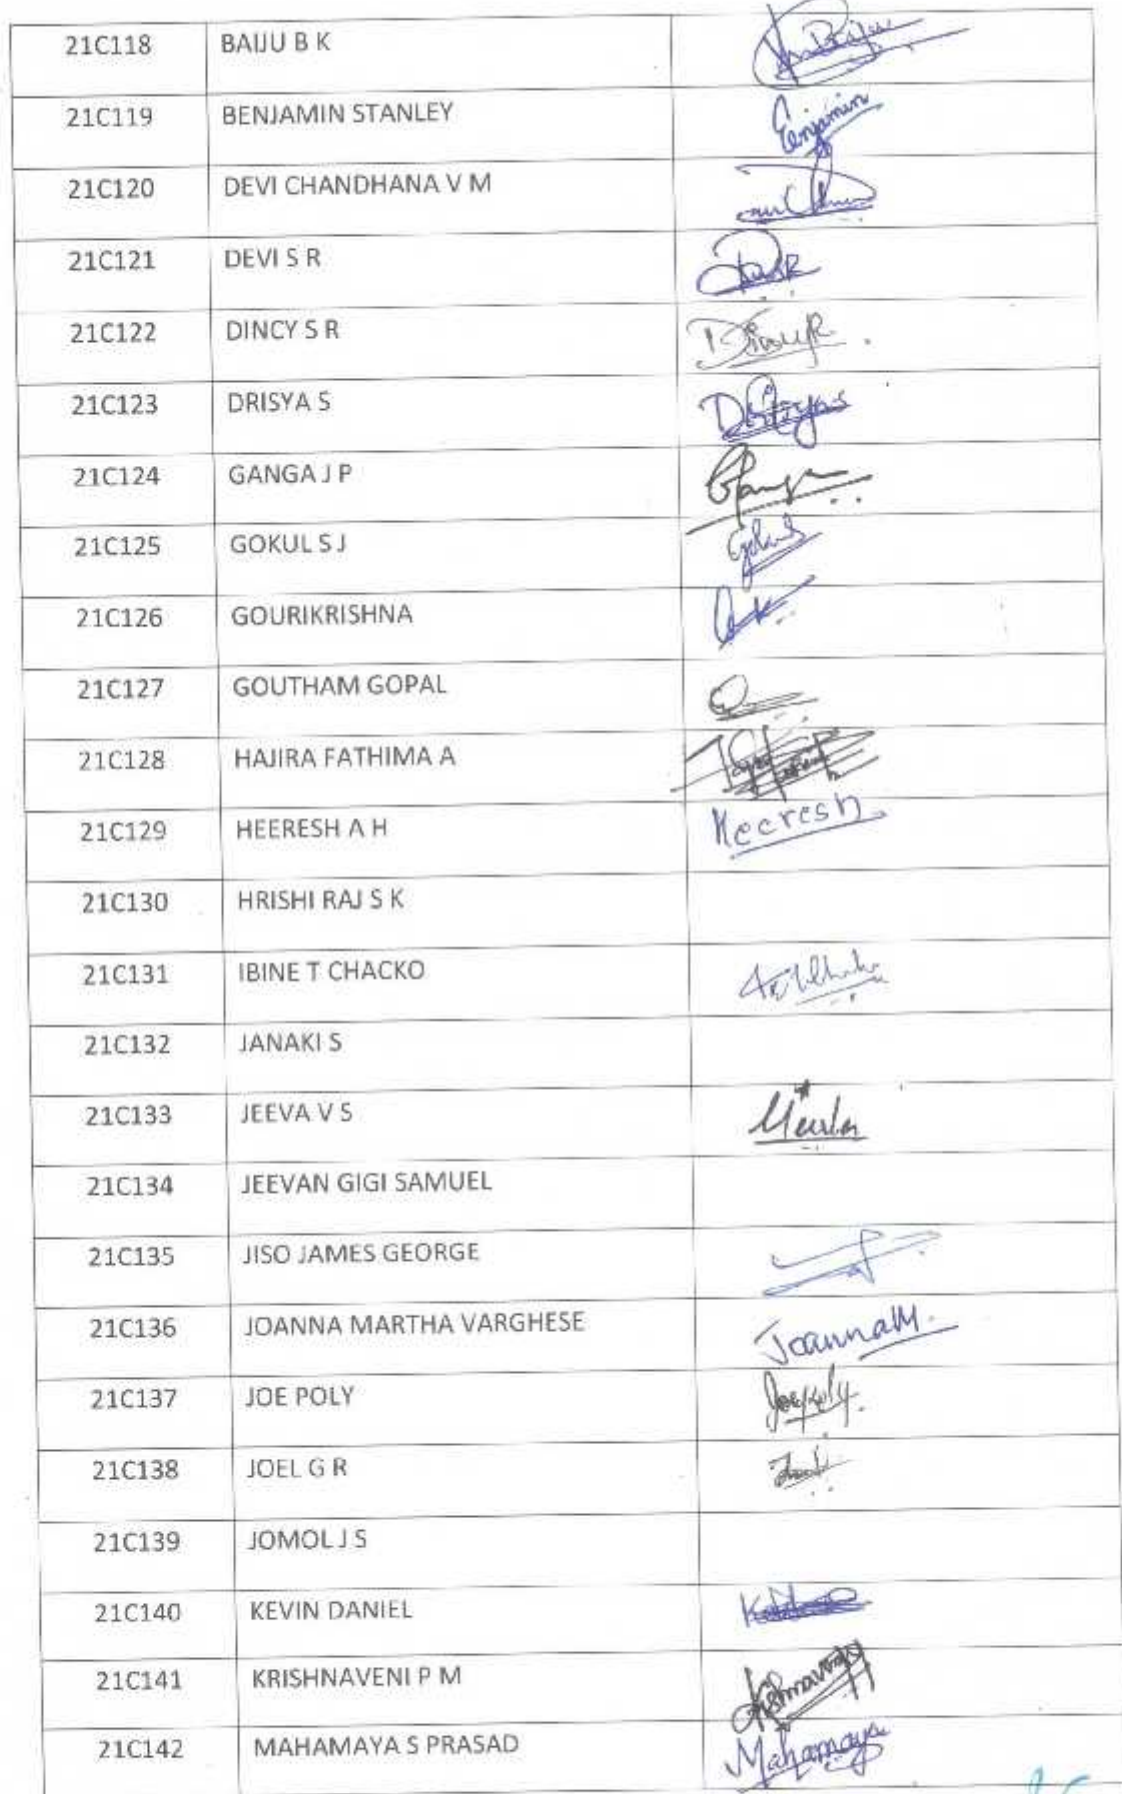 21C118 BAIJU B K
21C119 BENJAMIN STANLEY Benjamin
21C120 DEVI CHANDHANA V M
21C121 DEVI S R
21C122 DINCY S R
21C123 DRISYA S Drisya S
21C124 GANGA J P Ganga
21C125 GOKUL S J Gokul
21C126 GOURIKRISHNA
21C127 GOUTHAM GOPAL
21C128 HAJIRA FATHIMA A
21C129 HEERESH A H Heeresh
21C130 HRISHI RAJ S K
21C131 IBINE T CHACKO
21C132 JANAKI S
21C133 JEEVA V S
21C134 JEEVAN GIGI SAMUEL
21C135 JISO JAMES GEORGE
21C136 JOANNA MARTHA VARGHESE JoannaM.
21C137 JOE POLY Joepoly.
21C138 JOEL G R
21C139 JOMOL J S
21C140 KEVIN DANIEL
21C141 KRISHNAVENI P M
21C142 MAHAMAYA S PRASAD Mahamaya